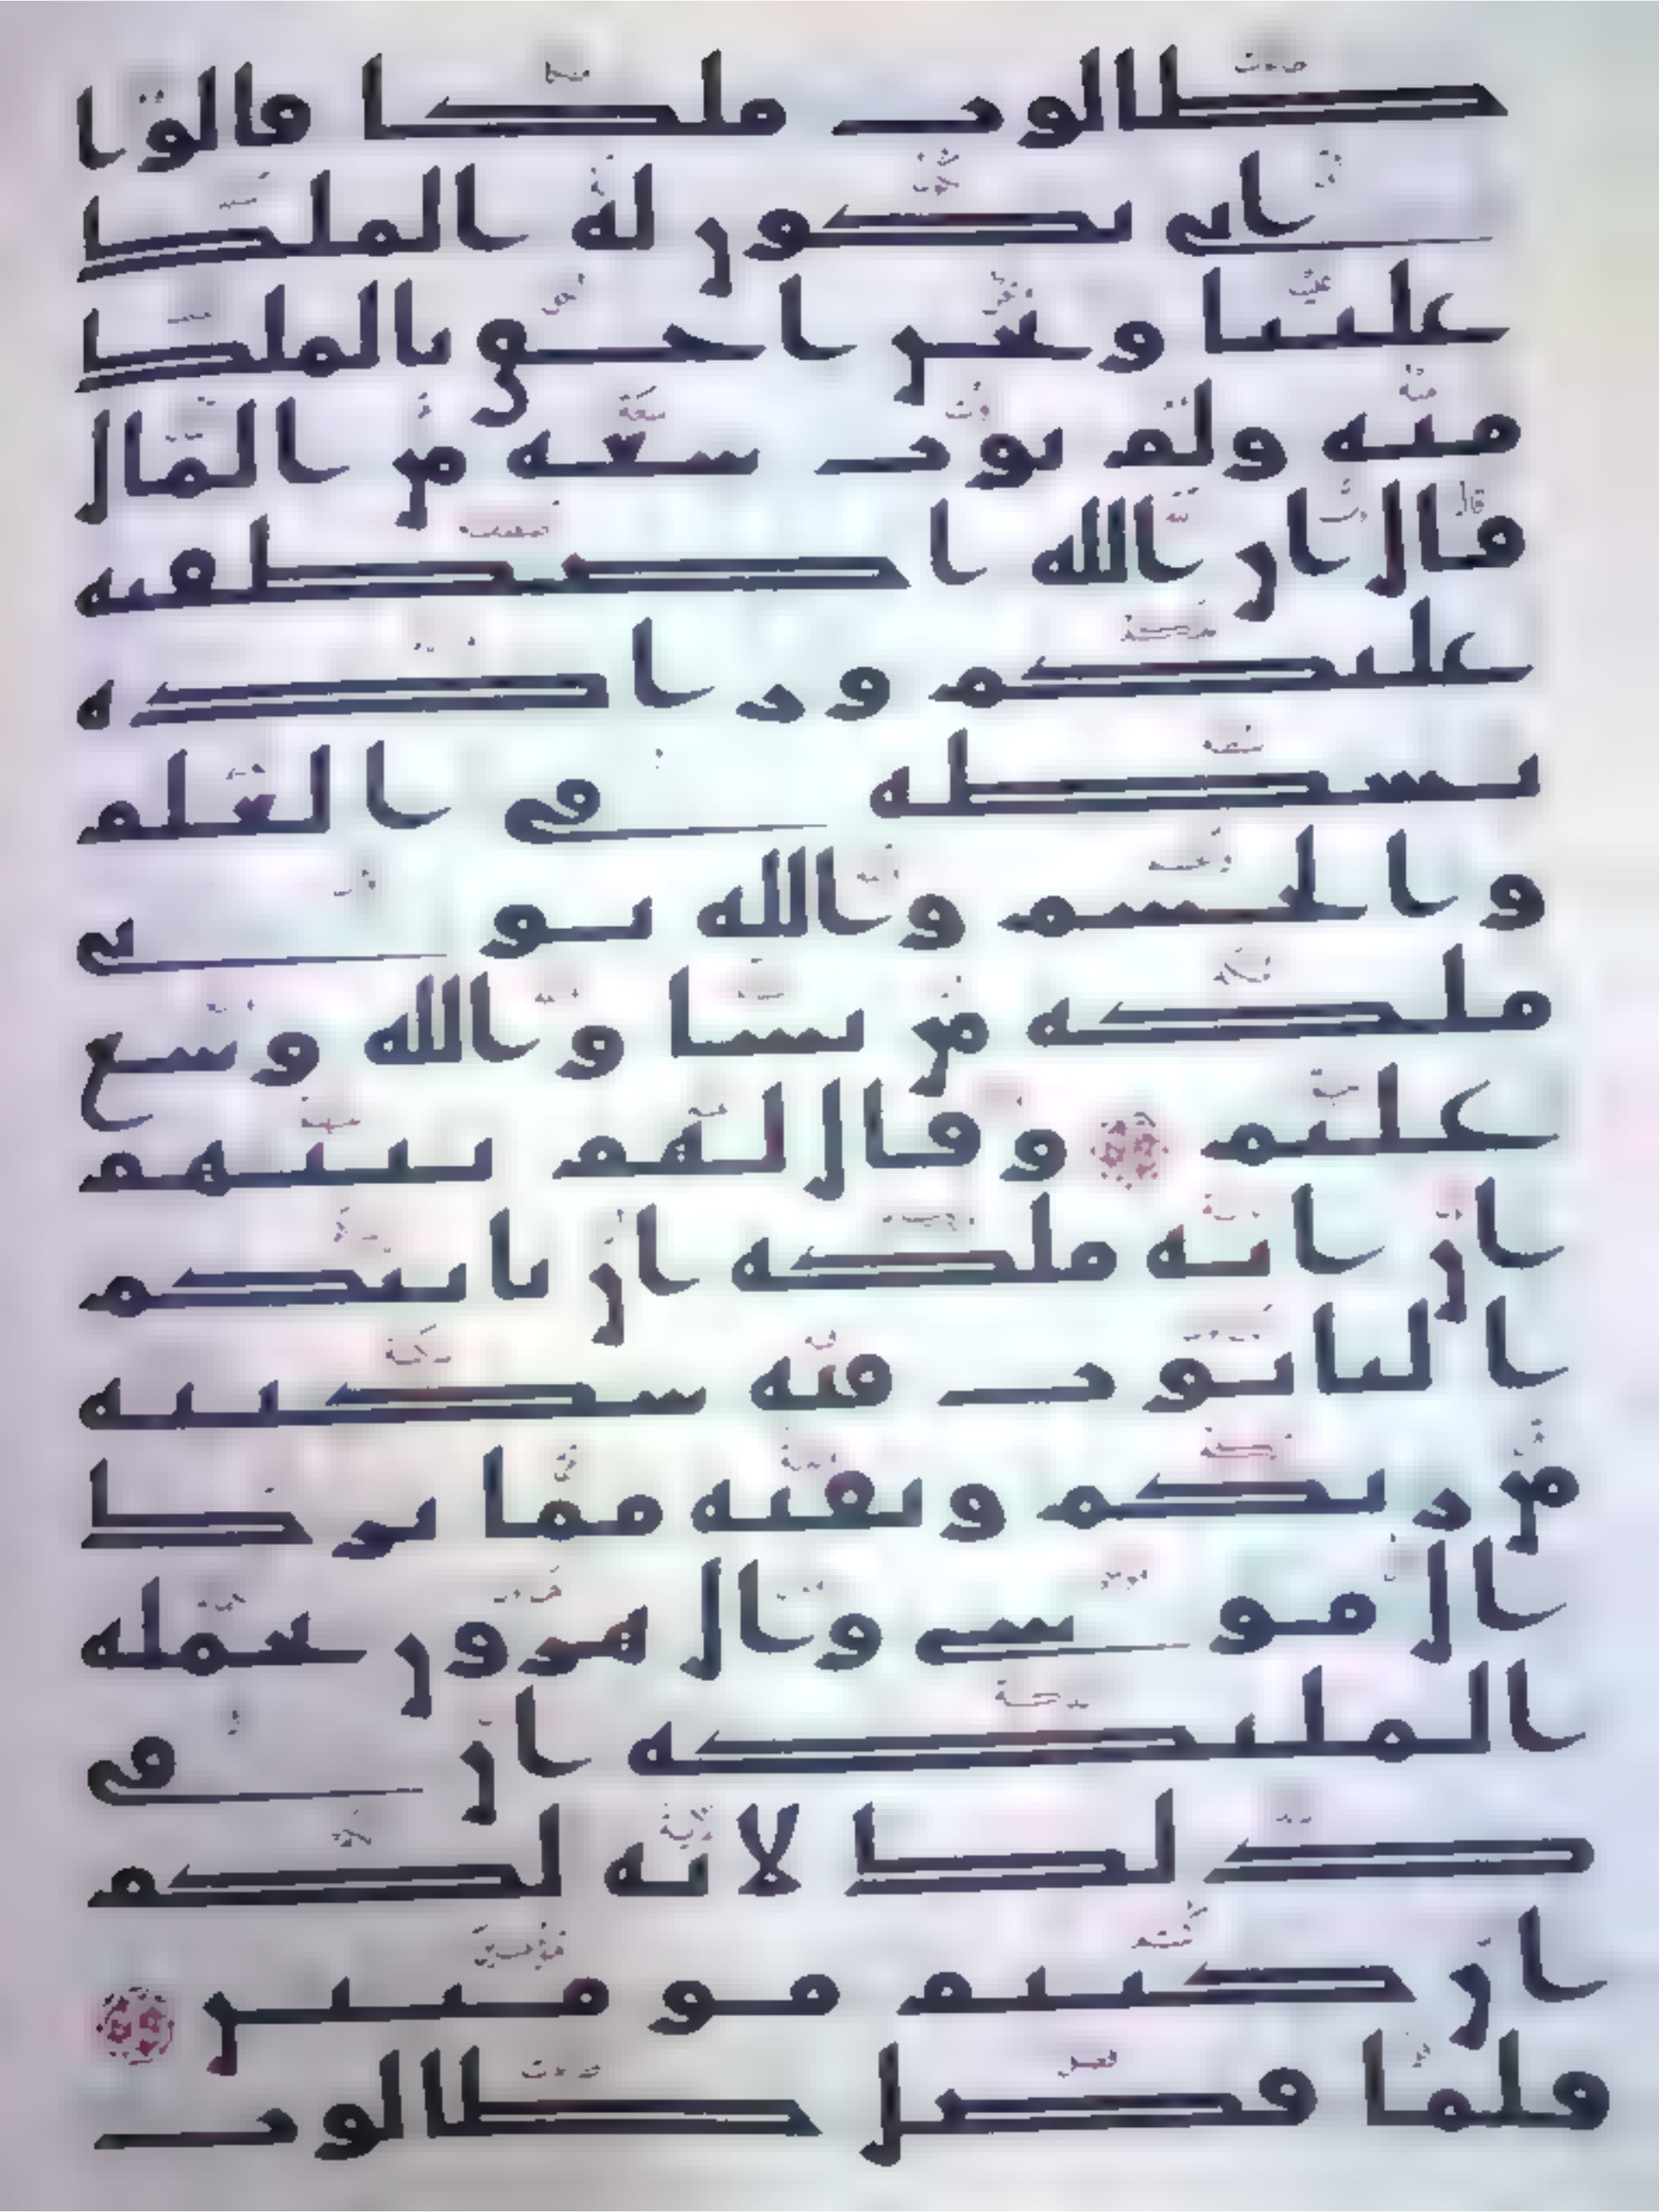 طالوت ملكا قالوا
انى يكون له الملك
علينا ونحن احق بالملك
منه ولم يوت سعة من المال
قال ان الله اصطفيه
عليكم وزاده
بسطة في العلم
والجسم والله يوتي
ملكه من يشا والله وسع
عليم وقال لهم نبيهم
ان اية ملكه ان ياتيكم
التابوت فيه سكينة
من ربكم وبقية مما ترك
ال موسى وال هرون تحمله
المليكة ان في
ذلك لاية لكم
ان كنتم مومنين
فلما فصل طالوت